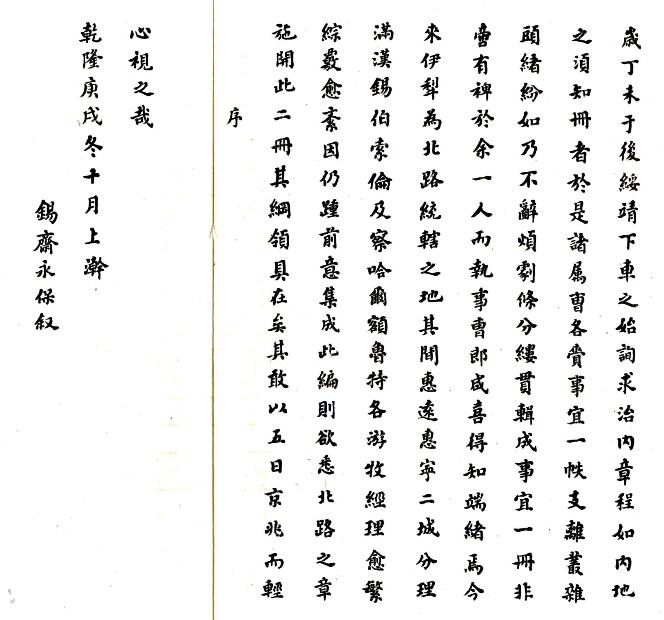 歲丁未于役綏靖下車之始詢求治内章程如内地
之須知冊者於是諸属曹各賫事宜一帙支離叢雜
頭緒紛如乃不辭煩劇條分縷貫輯成事宜一冊非
啻有裨於余一人而執事曹郎咸喜得知端緒焉今
來伊犁為北路統轄之地其間惠遠惠寧二城分理
滿漢錫伯索倫及察哈爾額魯特各游牧經理愈繁
綜覈愈紊因仍踵前意集成此編則欲悉北路之章
施開此二冊其綱領具在矣其敢以五日京兆而輕
序
心視之哉
乾隆庚戌冬十月上澣
錫齋永保叙